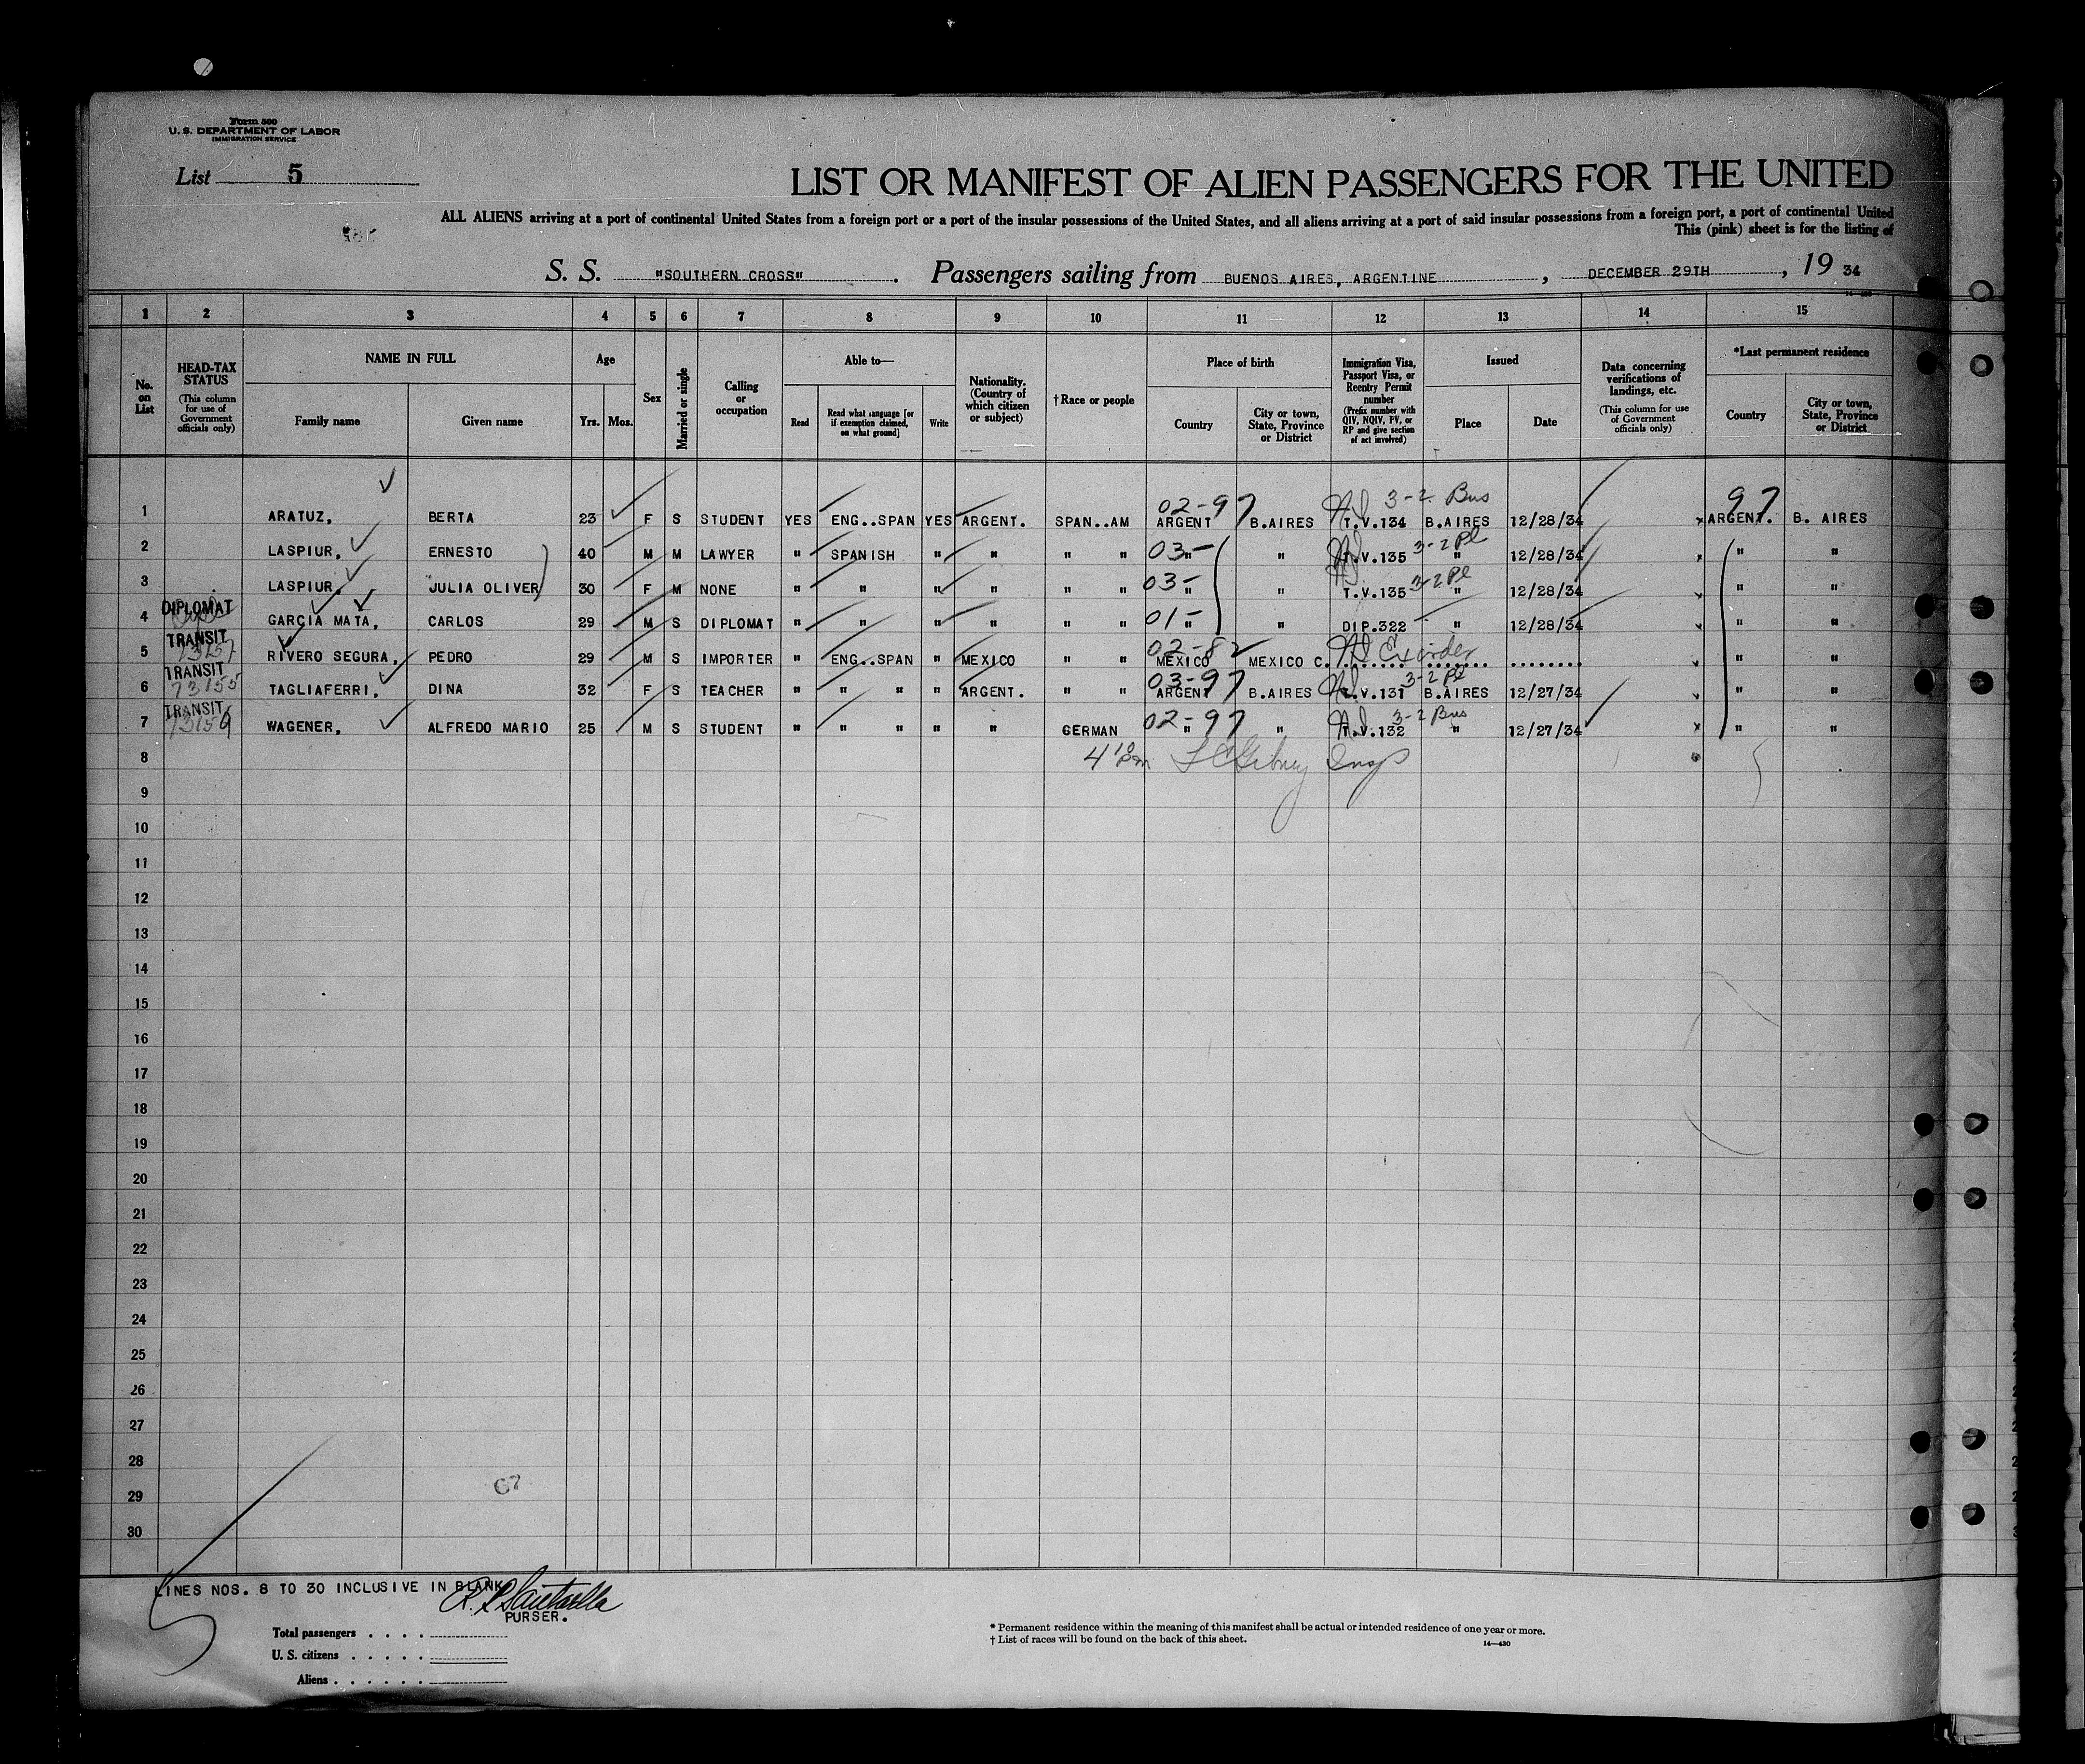 Form 500
U. S. DEPARTMENT OF LABOR
IMMIGRATION SERVICE
List 5
LIST OR MANIFEST OF ALIEN PASSENGERS FOR THE UNITED
ALL ALIENS arriving at a port of continental United States from a foreign port or a port of the insular possessions of the United States, and all aliens arriving at a port of said insular possessions from a foreign port, a port of continental United
This (pink) sheet is for the listing of
S. S. "SOUTHERN CROSS". Passengers sailing from BUENOS AIRES, ARGENTINE, DECEMBER 29TH, 19 34
1 2 3 4 5 6 7 8 9 10 11 12 13 14 15
No. on List
HEAD-TAX STATUS
(This column for use of Government officials only)
NAME IN FULL
Family name
Given name
Age
Yrs. Mos.
Sex
Married or single
Calling or occupation
Able to—
Read
Read what language [or if exemption claimed, on what ground]
Write
Nationality. (Country of which citizen or subject)
†Race or people
Place of birth
Country
City or town, State, Province or District
Immigration Visa, Passport Visa, or Reentry Permit number
(Prefix number with QIV, NQIV, PV, or RP and give section of act involved)
Issued
Place
Date
Data concerning verifications of landings, etc.
(This column for use of Government officials only)
*Last permanent residence
Country
City or town, State, Province or District
02-97 3-2 Bus 97
1 ARATUZ, BERTA 23 F S STUDENT YES ENG..SPAN YES ARGENT. SPAN..AM ARGENT B.AIRES T.V.134 B.AIRES 12/28/34 x ARGENT. B. AIRES
2 LASPIUR, ERNESTO 40 M M LAWYER " SPANISH " " " " 03- " " T.V.135 3-2 Pl " 12/28/34 x " "
3 LASPIUR, JULIA OLIVER 30 F M NONE " " " " " " 03- " " T.V.135 3-2 Pl " 12/28/34 " "
DIPLOMAT
4 GARCIA MATA, CARLOS 29 M S DIPLOMAT " " " " " " 01- " " DIP.322 " 12/28/34 " "
TRANSIT
02-82
5 RIVERO SEGURA, PEDRO 29 M S IMPORTER " ENG..SPAN " MEXICO " " MEXICO MEXICO C. ........ ........ ........ " "
TRANSIT
73155 03-97 3-2 Pl
6 TAGLIAFERRI, DINA 32 F S TEACHER " " " " ARGENT. " " ARGENT B.AIRES T.V.131 B.AIRES 12/27/34 " "
TRANSIT
02-97 3-2 Bus
7 WAGENER, ALFREDO MARIO 25 M S STUDENT " " " " " GERMAN " " T.V.132 " 12/27/34 x " "
8
9
10
11
12
13
14
15
16
17
18
19
20
21
22
23
24
25
26
27
28
29
30
LINES NOS. 8 TO 30 INCLUSIVE IN BLANK
PURSER.
Total passengers . . . .
U. S. citizens . . . . .
Aliens . . . . . .
* Permanent residence within the meaning of this manifest shall be actual or intended residence of one year or more.
† List of races will be found on the back of this sheet.
14—430